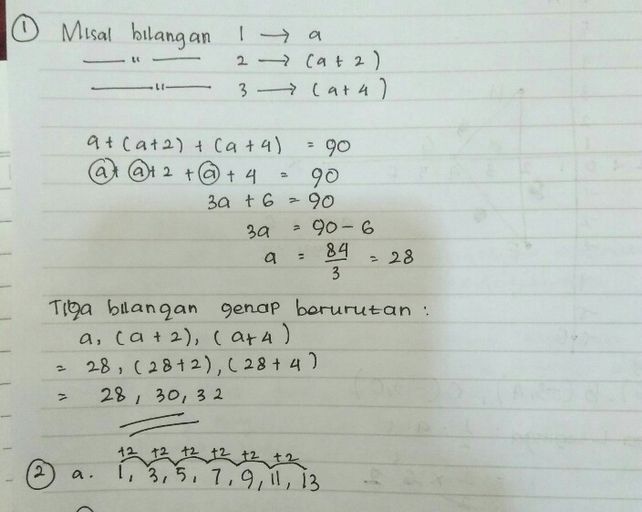 ① Misal bilangan 1 → a
—— " —— 2 → (a + 2)
—— " —— 3 → (a + 4)
a + (a+2) + (a + 4) = 90
a + a + 2 + a + 4 = 90
3a + 6 = 90
3a = 90 - 6
a = 84/3 = 28
Tiga bilangan genap berurutan :
a, (a + 2), (a + 4)
= 28, (28+2), (28 + 4)
= 28, 30, 32
+2 +2 +2 +2 +2 +2
② a. 1, 3, 5, 7, 9, 11, 13